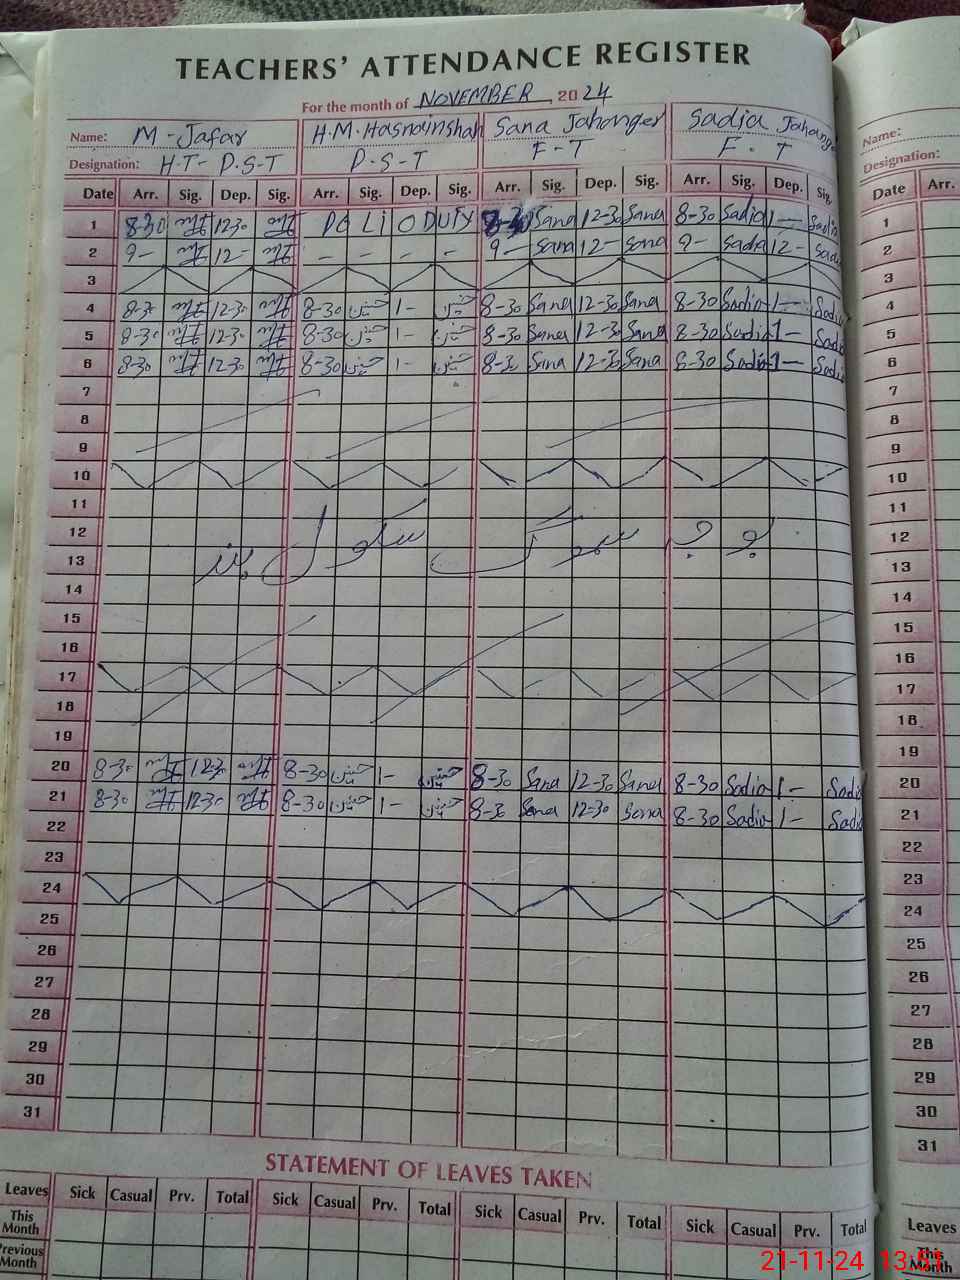 TEACHERS' ATTENDANCE REGISTER
For the month of NOVEMBER, 2024
Name: M-Jafar H.M.Hasnainshah Sana Jahanger Sadia Jahang Name:
Designation: H.T- P.S.T P.S-T F-T F.T Designation:
Date Arr. Sig. Dep. Sig. Arr. Sig. Dep. Sig. Arr. Sig. Dep. Sig. Arr. Sig. Dep. Sig. Date Arr.
1 8-30 12-30 POLIO DUTY 8-30 Sana 12-30 Sana 8-30 Sadia 1- Sadia 1
2 9- 12- - - - - 9- Sana 12- Sana 9- Sadia 12- Sadi 2
3 3
4 8-30 12-30 8-30 1- 8-30 Sana 12-30 Sana 8-30 Sadia 1- Sadi 4
5 8-30 12-30 8-30 1- 8-30 Sana 12-30 Sana 8-30 Sadia 1- Sadi 5
6 8-30 12-30 8-30 1- 8-30 Sana 12-30 Sana 8-30 Sadia 1- Sadi 6
7 7
8 8
9 9
10 10
11 11
12 12
13 بوجہ سموگ سکول بند 13
14 14
15 15
16 16
17 17
18 18
19 19
20 8-30 12-30 8-30 1- 8-30 Sana 12-30 Sana 8-30 Sadia 1- Sadi 20
21 8-30 12-30 8-30 1- 8-30 Sana 12-30 Sana 8-30 Sadia 1- Sadi 21
22 22
23 23
24 24
25 25
26 26
27 27
28 28
29 29
30 30
31 31
STATEMENT OF LEAVES TAKEN
Leaves Sick Casual Prv. Total Sick Casual Prv. Total Sick Casual Prv. Total Sick Casual Prv. Total Leaves
This Month This Month
Previous Month
21-11-24 13:51